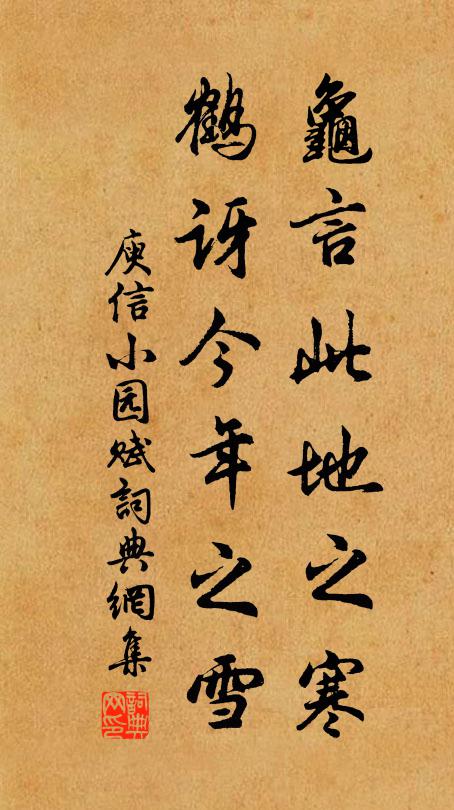 龜言此地之寒
鶴訝今年之雪
庾信小园赋詞典網集
詞典网印